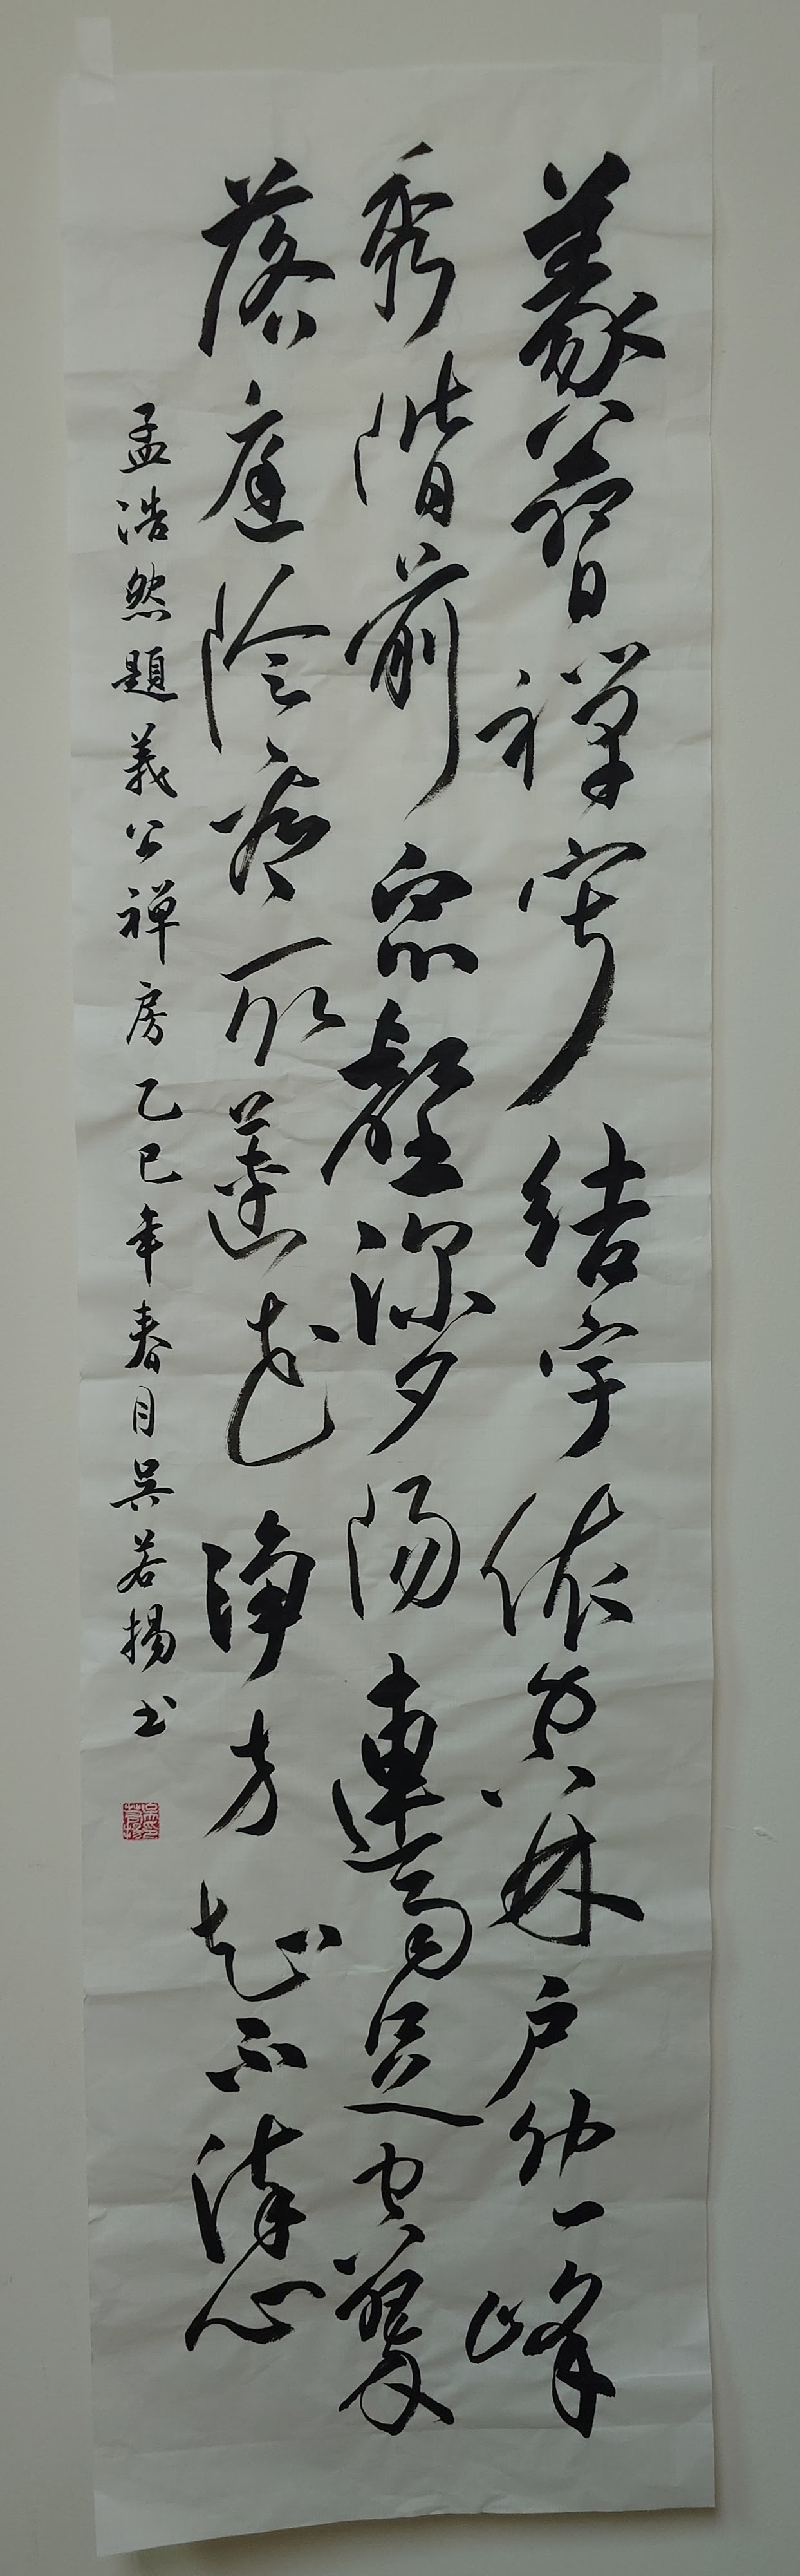 義公習禪寂結宇依空林戶外一峰
秀階前眾壑深夕陽連雨足空翠
落庭陰看取蓮花淨方知不染心
孟浩然題義公禪房乙巳年春月吳若揚书